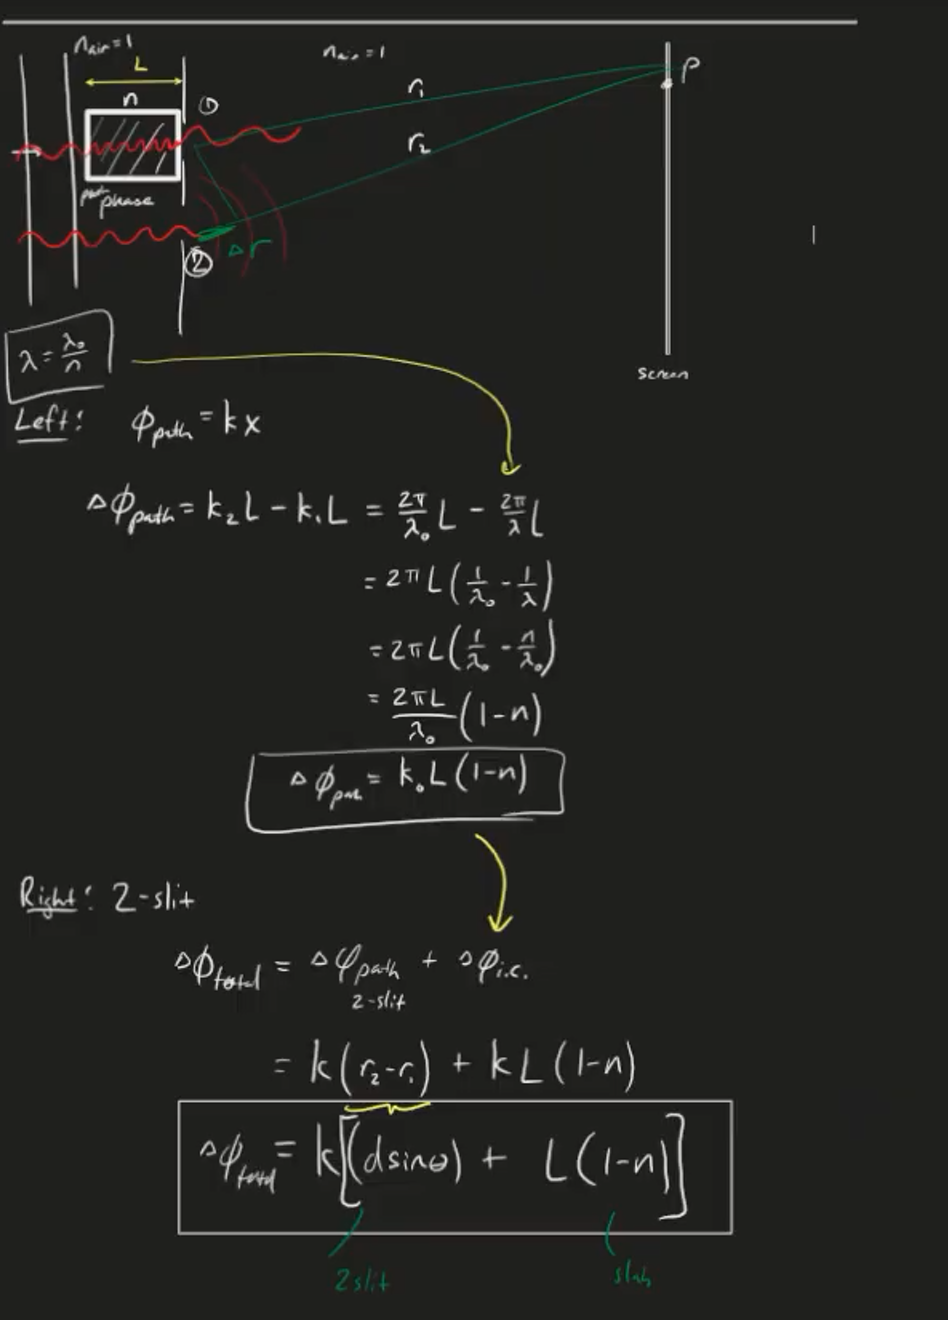 n_air = 1
n_air = 1
L
n
①
r₁
P
r₂
path phase
②
Δr
λ = λ₀/n
screen
Left: ϕ_path = kx
Δϕ_path = k₂L - k₁L = 2π/λ₀ L - 2π/λ L
= 2πL(1/λ₀ - 1/λ)
= 2πL(1/λ₀ - n/λ₀)
= 2πL/λ₀ (1-n)
Δϕ_path = k₀L(1-n)
Right: 2-slit
Δϕ_total = Δφ_path + Δφ_i.c.
2-slit
= k(r₂-r₁) + kL(1-n)
Δϕ_total = k[(dsinθ) + L(1-n)]
2slit
slab